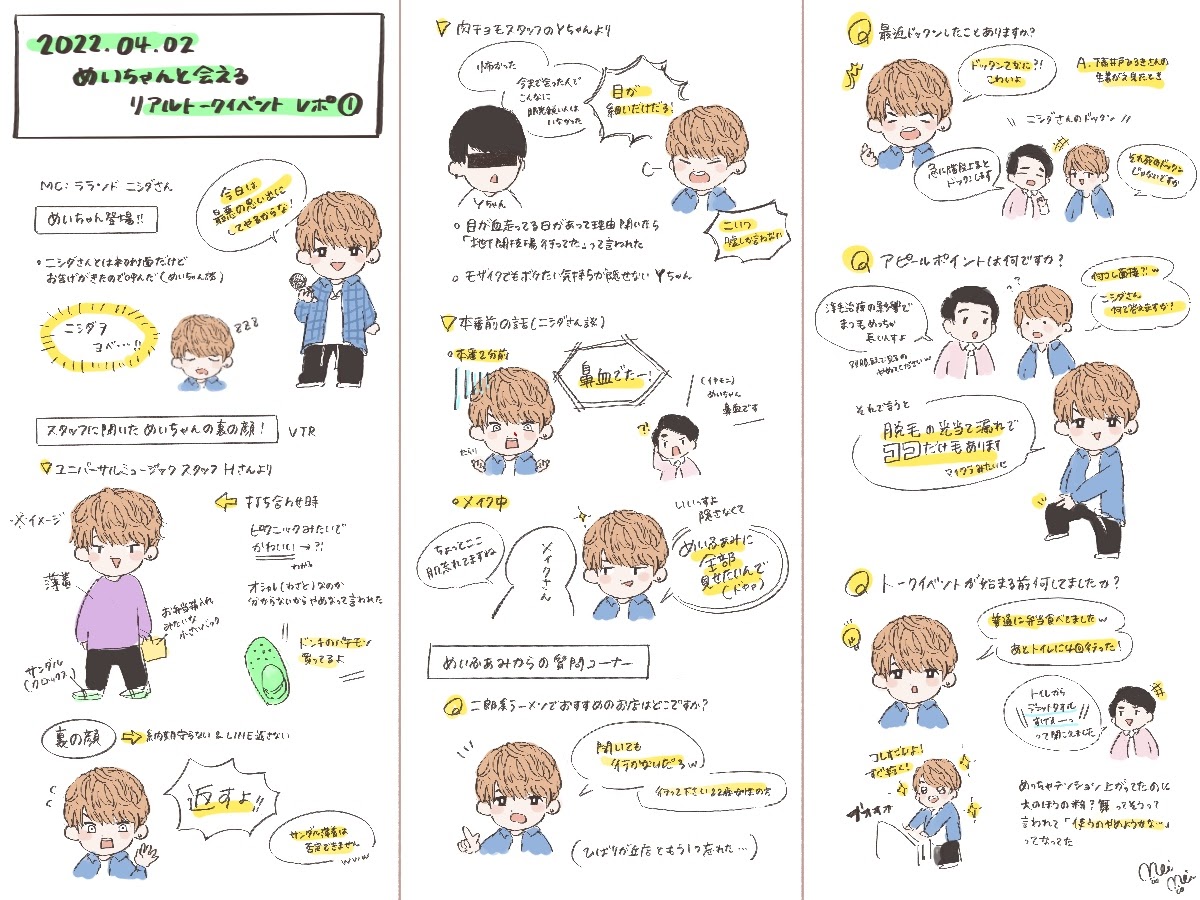 2022.04.02
めいちゃんと会える
リアルトークイベント レポ①
MC: ララランド ニシダさん
今日は
最悪の思い出に
してやるからな！
めいちゃん登場!!
ニシダさんとは初対面だけど
お告げがきたので呼んだ(めいちゃん談)
ニシダヲ
ヨベ…!!
zzz
スタッフに聞いためいちゃんの裏の顔！ VTR
▽ユニバーサルミュージック スタッフHさんより
※イメージ
薄着
お弁当箱入れ
みたいな
小さいバック
サンダル
(クロックス)
⇐ 打ち合わせ時
ピクニックみたいで
かわいい→?!
わかる
オシャレ(わざと)なのか
分からないからやめなって言われた
ドンキのパチモン
買ってるよ
裏の顔 ⇒ 納期守らない & LINE返さない
返すよ!!
サンダル薄着は
否定できません
www
▽肉チョモスタッフのYちゃんより
怖かった
今まで会った人で
こんなに
眼光鋭い人は
いなかった
目が
細いだけだろ！
Yちゃん
目が血走ってる日があって理由聞いたら
「地下闘技場行ってた」って言われた
こいつ
嘘しか言わない
モザイクでもボケたい気持ちが隠せないYちゃん
▽本番前の話(ニシダさん談)
本番2分前
鼻血でたー！
たらり
(イヤモニ)
めいちゃん
鼻血です
?!
メイク中
ちょっとここ
肌荒れてますね
メイクさん
いいっすよ
隠さなくて
めいふぁみに
全部
見せたいんで
(ドヤァ)
めいふぁみからの質問コーナー
Q 二郎系ラーメンでおすすめのお店はどこですか？
聞いても
行かないだろw
行って下さい22歳女性の方
(ひばりが丘店ともう1つ忘れた…)
Q 最近ドックンしたことありますか？
ドックンてなに?!
こわいよ
A. 下高井戸ひろきさんの
生着がえ見たとき
\\ ニシダさんのドックン //
急に階段上ると
ドックンします
それ死のドックン
じゃないですか
Q アピールポイントは何ですか？
薄毛治療の影響で
まつ毛めっちゃ
長いんすよ
何コレ面接?!w
ニシダさん
何て答えますか？
それで言うと
脱毛の光当て漏れで
ココだけ毛あります
マイクラみたいに
Q トークイベントが始まる前何してましたか？
普通に弁当食べてましたw
あとトイレに4回行った！
トイレから
デラットタオル
すげえーっ
って聞こえました
コレすごいよ！
すぐ乾く！
ブオオオ
めっちゃテンション上がってたのに
大のほうの利？舞ってそうって
言われて「使うのやめようかな…」
ってなってた
mei mei